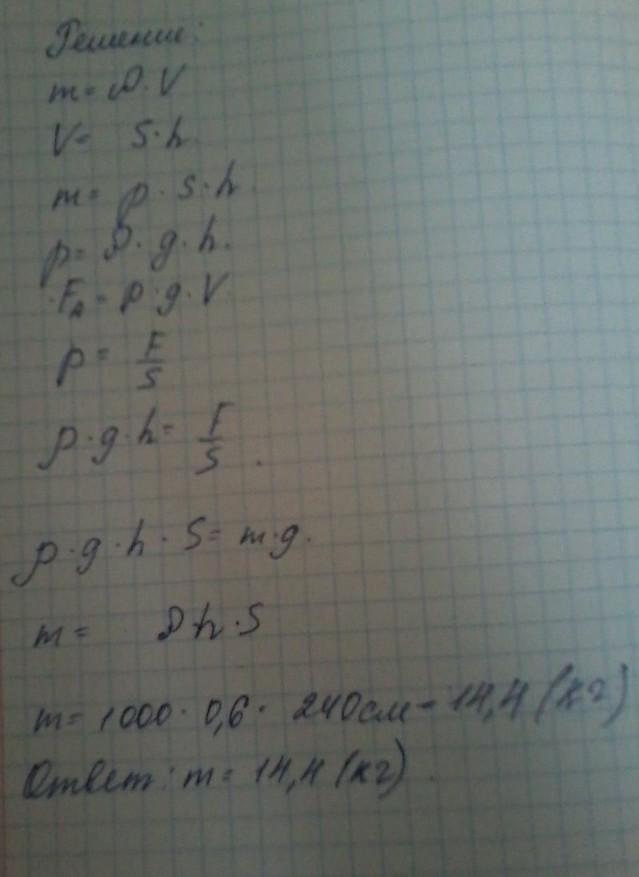 Решение:
m = ρ · V
V = S · h
m = ρ · S · h
p = ρ · g · h.
F_A = ρ · g · V
p = F/S
ρ · g · h = F/S.
ρ · g · h · S = m · g.
m = ρ h · S
m = 1000 · 0,6 · 240см = 14,4 (кг)
Ответ: m = 14,4 (кг).